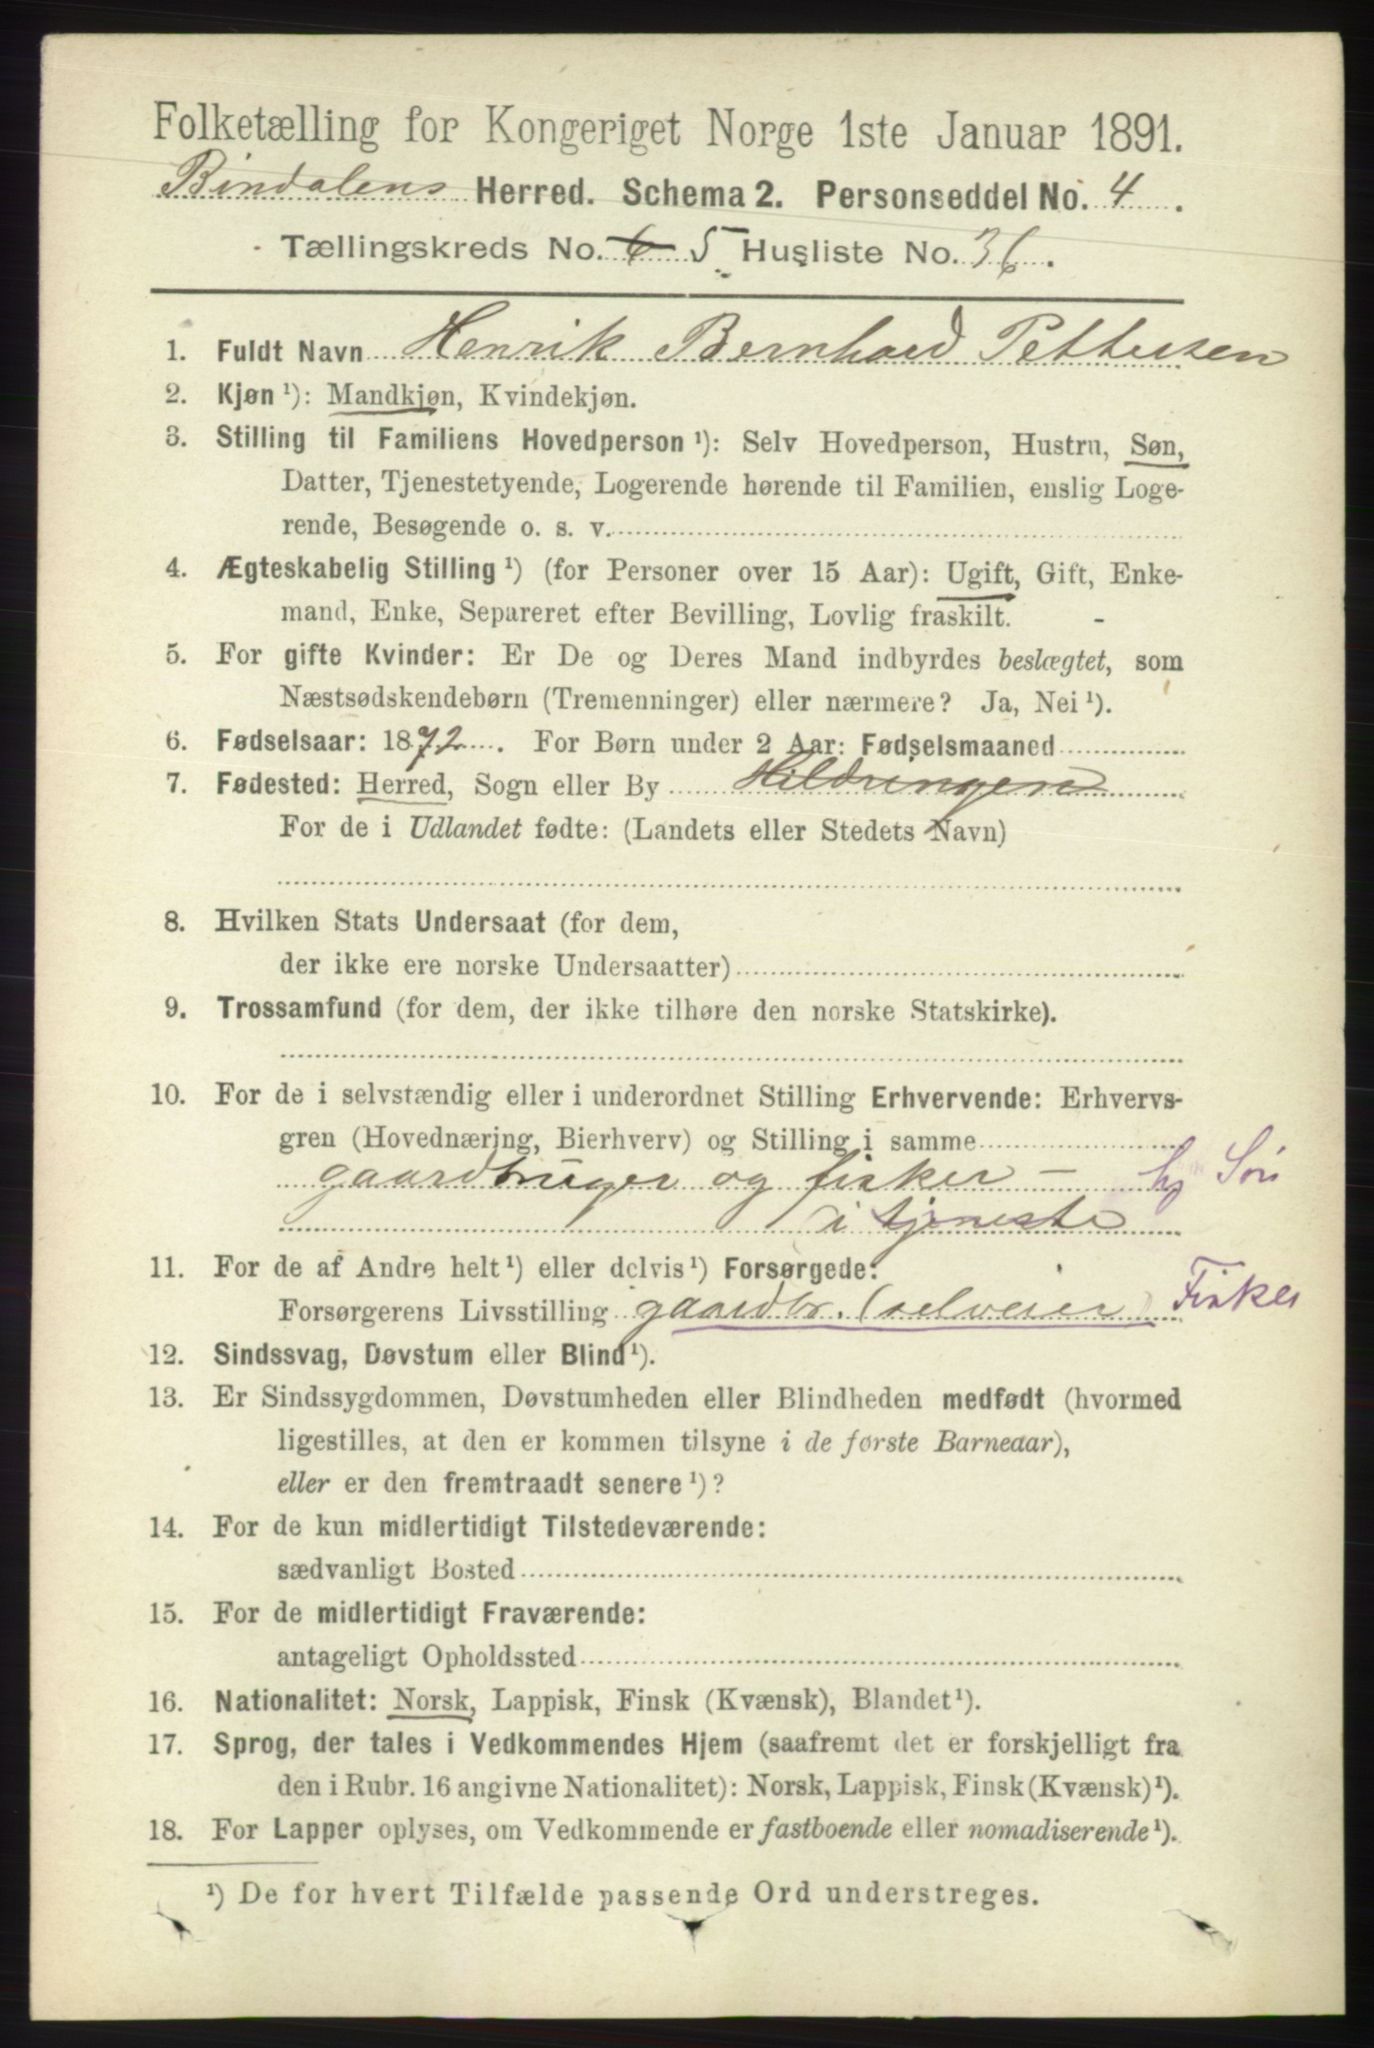 Folketælling for Kongeriget Norge 1ste Januar 1891.
Bindalens Herred. Schema 2. Personseddel No. 4.
Tællingskreds No. 6 5 Husliste No. 36.
1. Fuldt Navn Henrik Bernhard Pettersen
2. Kjøn ¹): Mandkjøn, Kvindekjøn.
3. Stilling til Familiens Hovedperson ¹): Selv Hovedperson, Hustru, Søn,
Datter, Tjenestetyende, Logerende hørende til Familien, enslig Loge-
rende, Besøgende o. s. v.
4. Ægteskabelig Stilling ¹) (for Personer over 15 Aar): Ugift, Gift, Enke-
mand, Enke, Separeret efter Bevilling, Lovlig fraskilt. -
5. For gifte Kvinder: Er De og Deres Mand indbyrdes beslægtet, som
Næstsødskendebørn (Tremenninger) eller nærmere? Ja, Nei ¹).
6. Fødselsaar: 1872. For Børn under 2 Aar: Fødselsmaaned
7. Fødested: Herred, Sogn eller By Hildringen
For de i Udlandet fødte: (Landets eller Stedets Navn)
8. Hvilken Stats Undersaat (for dem,
der ikke ere norske Undersaatter)
9. Trossamfund (for dem, der ikke tilhøre den norske Statskirke).
10. For de i selvstændig eller i underordnet Stilling Erhvervende: Erhvervs-
gren (Hovednæring, Bierhverv) og Stilling i samme
gaardbruger og fisker - hj Søn
i tjeneste
11. For de af Andre helt ¹) eller delvis ¹) Forsørgede:
Forsørgerens Livsstilling gaardbr. (selveier) Fisker
12. Sindssvag, Døvstum eller Blind ¹).
13. Er Sindssygdommen, Døvstumheden eller Blindheden medfødt (hvormed
ligestilles, at den er kommen tilsyne i de første Barneaar),
eller er den fremtraadt senere ¹)?
14. For de kun midlertidigt Tilstedeværende:
sædvanligt Bosted
15. For de midlertidigt Fraværende:
antageligt Opholdssted
16. Nationalitet: Norsk, Lappisk, Finsk (Kvænsk), Blandet ¹).
17. Sprog, der tales i Vedkommendes Hjem (saafremt det er forskjelligt fra
den i Rubr. 16 angivne Nationalitet): Norsk, Lappisk, Finsk (Kvænsk) ¹).
18. For Lapper oplyses, om Vedkommende er fastboende eller nomadiserende ¹).
¹) De for hvert Tilfælde passende Ord understreges.